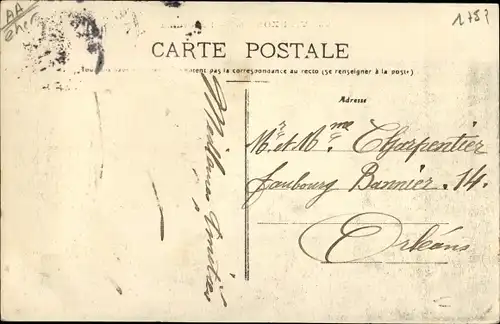 AA
Cher
CARTE POSTALE
pas la correspondance au recto (se renseigner à la poste)
Adresse
Mr et Mme Charpentier
faubourg Bannier. 14.
Orléans
Meilleures Amitiés